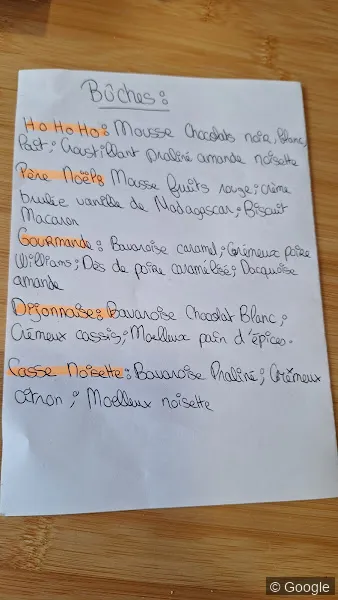 Bûches :
Ho Ho Ho : Mousse Chocolats noir, Blanc,
Past ; Croustillant praliné amande noisette
Père Noël : Mousse fruits rouge ; crème
brulée vanille de Madagascar ; Biscuit
Macaron
Gourmande : Bavaroise caramel ; Crémeux poire
Williams ; Dés de poire caramélisé ; Dacquoise
amande
Dijonnaise : Bavaroise Chocolat Blanc ;
Crémeux cassis ; Moelleux pain d'épices.
Casse Noisette : Bavaroise Praliné ; Crémeux
citron ; Moelleux noisette
© Google